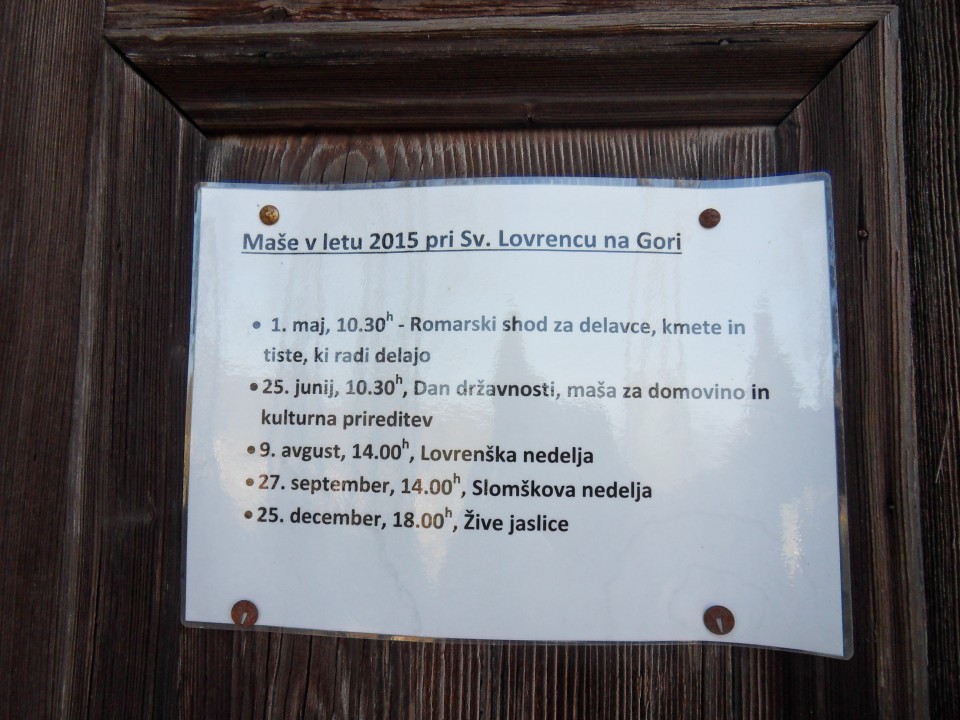 Maše v letu 2015 pri Sv. Lovrencu na Gori
• 1. maj, 10.30h - Romarski shod za delavce, kmete in
tiste, ki radi delajo
• 25. junij, 10.30h, Dan državnosti, maša za domovino in
kulturna prireditev
• 9. avgust, 14.00h, Lovrenška nedelja
• 27. september, 14.00h, Slomškova nedelja
• 25. december, 18.00h, Žive jaslice